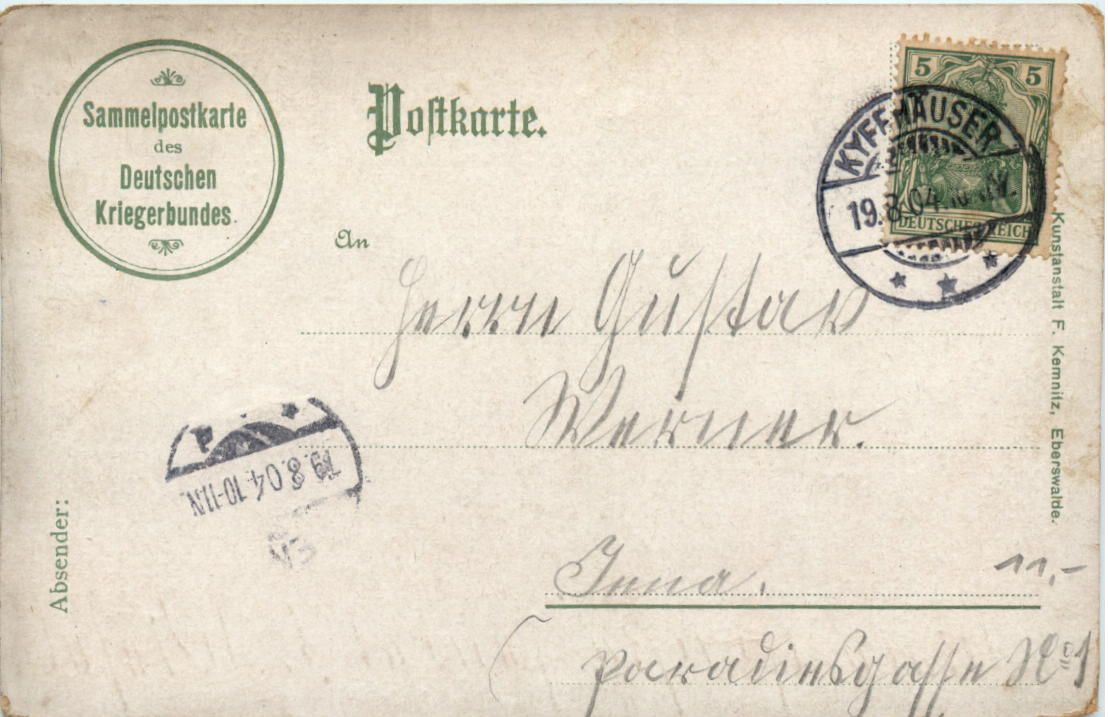 Sammelpostkarte
des
Deutschen
Kriegerbundes.
Postkarte.
5 5
DEUTSCHES REICH
KYFFHÄUSER
19.8.04
An
Herrn Gustav
Werner.
Jena.
Paradiesgasse No 1
11,-
19.8.04.10-11.N.
Absender:
Kunstanstalt F. Kemnitz, Eberswalde.